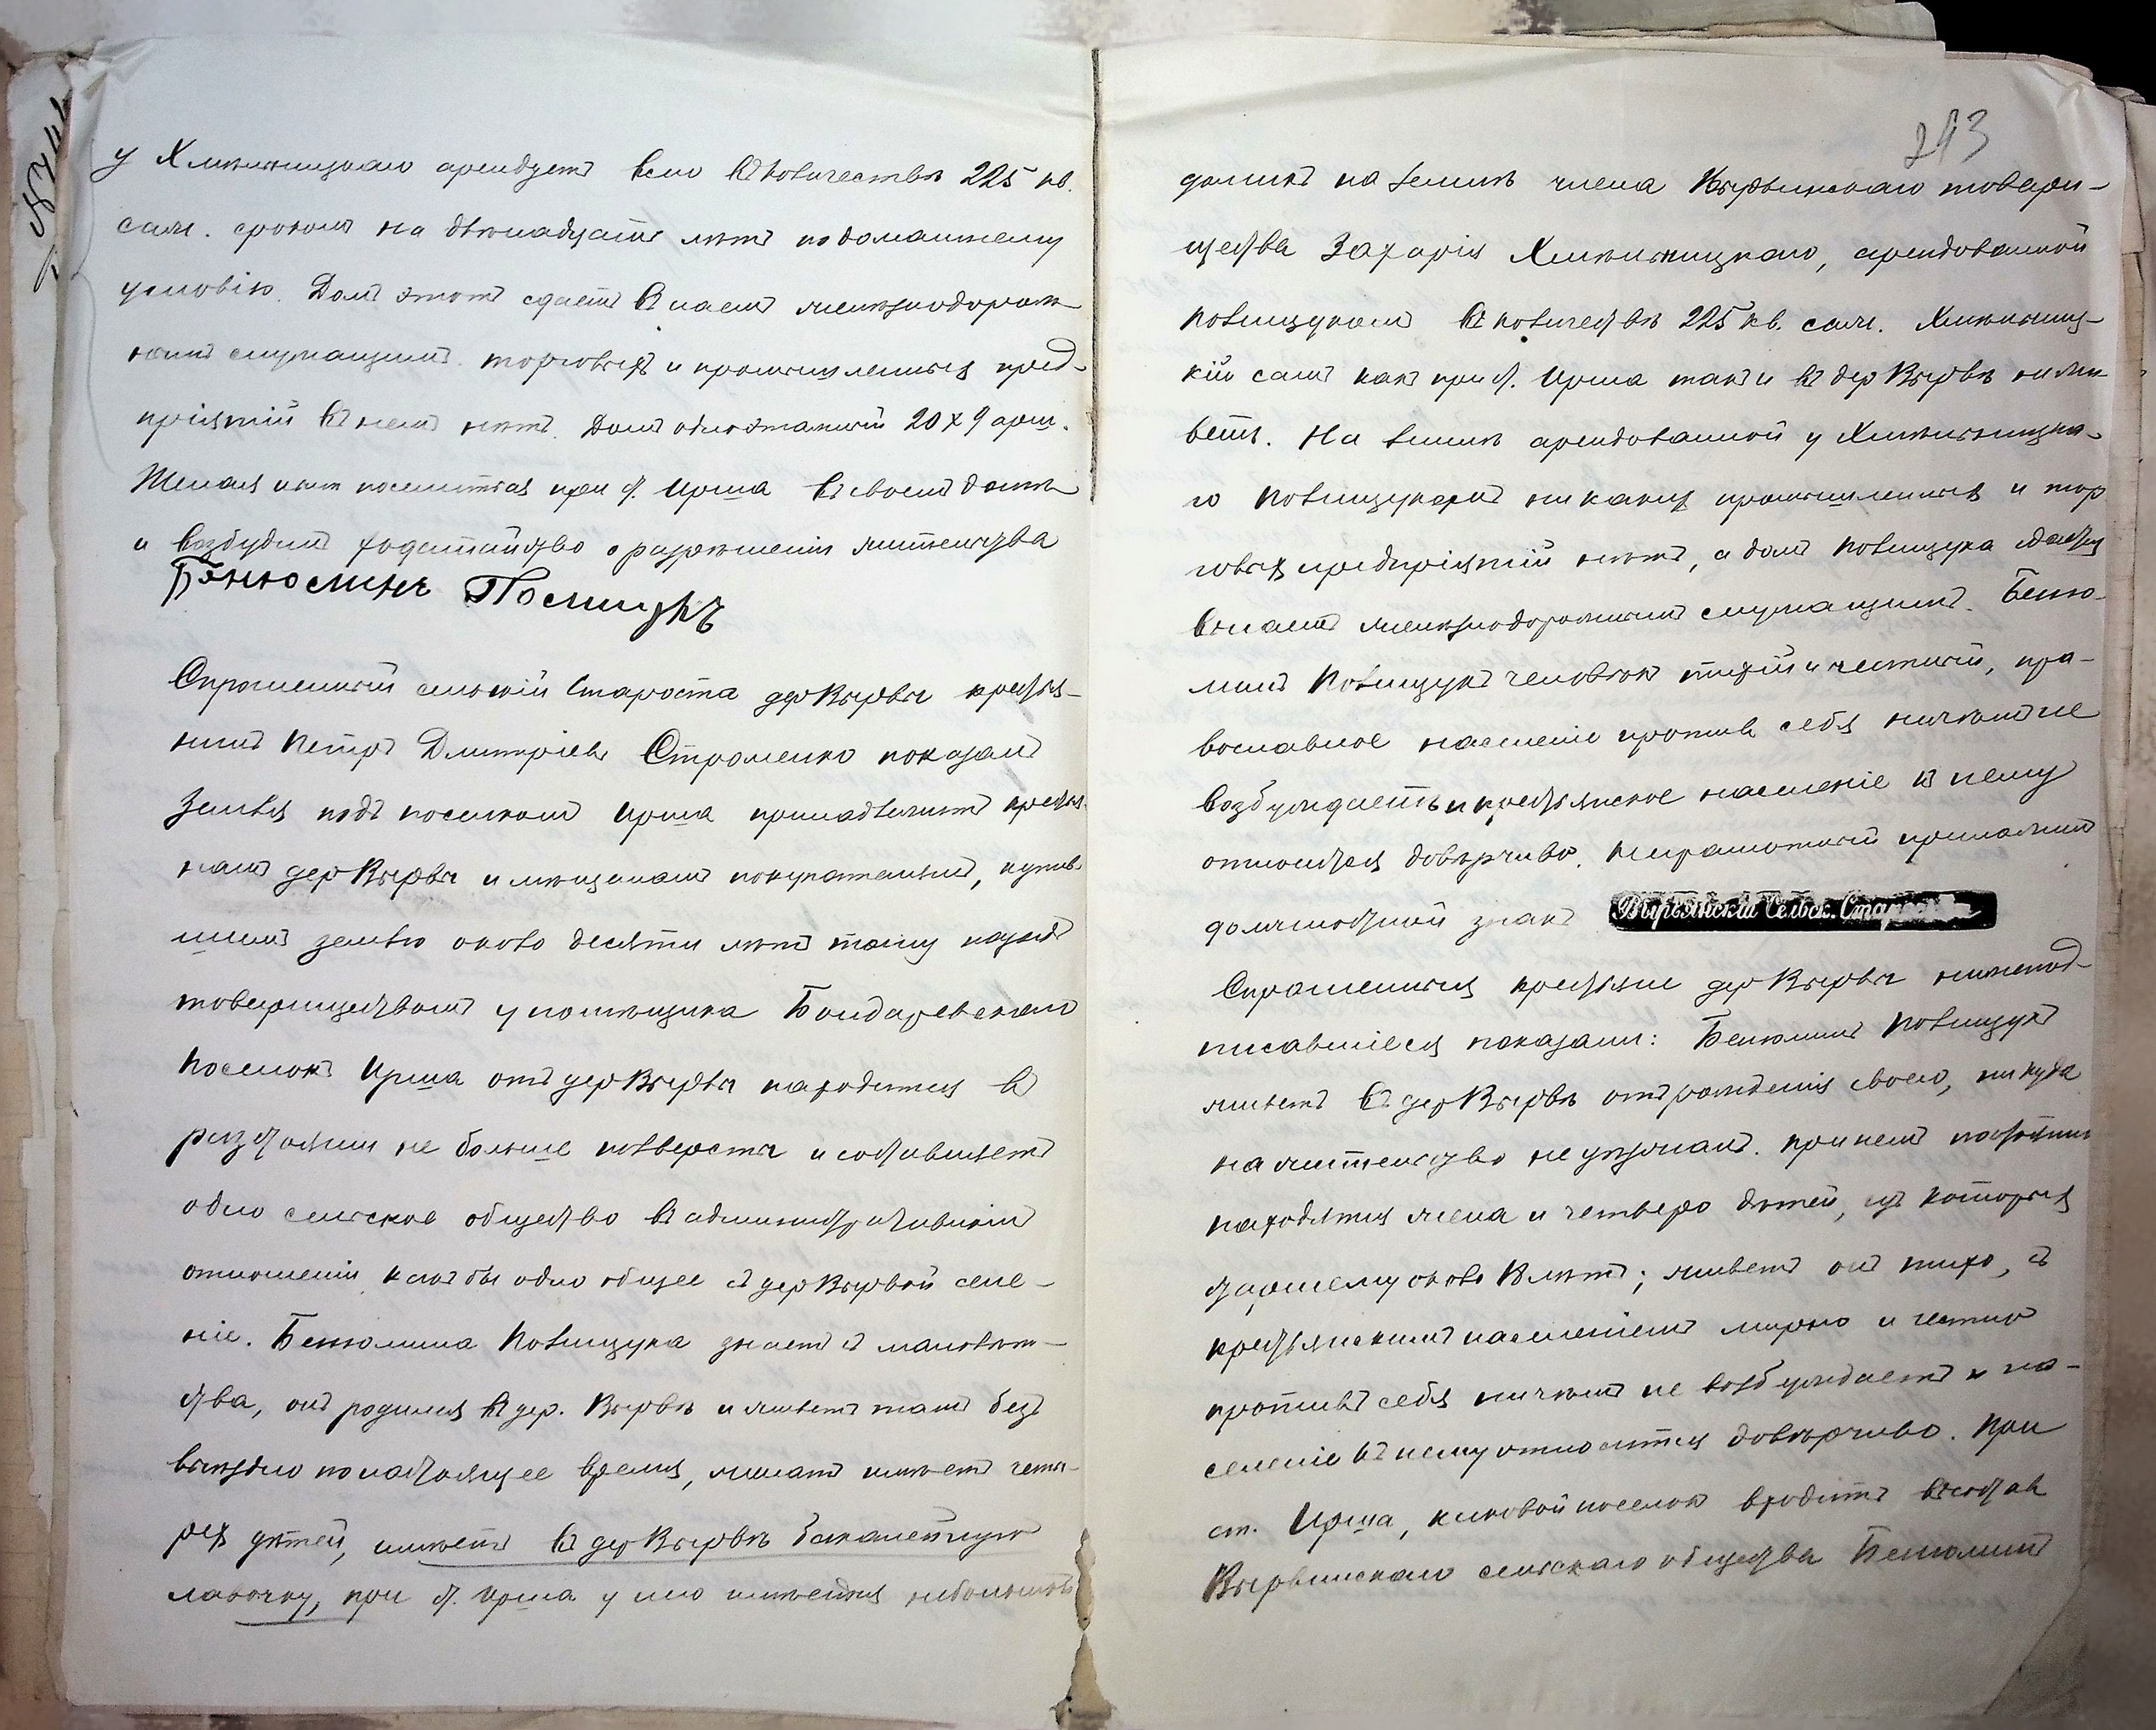 у Хмельницкаго арендуетъ всего въ количествѣ 225 кв.
саж. срокомъ на двѣнадцать лѣтъ по домашнему
условію. Домъ этотъ сдаетъ въ наемъ желѣзнодорож
нымъ служащимъ. торговыхъ и промышленныхъ пред-
пріятій въ немъ нѣтъ. Домъ одноэтажный 20х9 арш.
Желая поселиться при ст. Ирша въ своемъ домѣ
и возбудилъ ходатайство о разрѣшеніи жительства
Бенюминъ
Спрошенный сельскій Староста дер Вырвы крестья-
нинъ Петръ Дмитріевъ Строменко показалъ
Земля подъ поселкомъ Ирша принадлежитъ крестья
намъ дер Вырвы и мѣщанамъ покупателямъ, купив
шимъ землю около десяти лѣтъ тому назадъ
товариществомъ у помѣщика Бондаревскаго
Поселокъ Ирша отъ дер Вырвы находится въ
разстояніи не больше полверсты и составляетъ
одно сельское общество въ административномъ
отношеніи какъ бы одно общее съ дер Вырвой селе-
ніе. Бенюмина Полищука знаетъ съ малолѣт-
ства, онъ родился въ дер. Вырвѣ и живетъ тамъ безъ
выѣздно по настоящее время, женатъ имѣетъ четы-
рехъ дѣтей, имѣетъ въ дер Вырвѣ бакалейную
лавочку, при ст. Ирша у него имѣется небольшой
243
домикъ на землѣ члена Вырвинскаго товари-
щества Захарія Хмельницкаго, арендованной
Полищукомъ въ количествѣ 225 кв. саж. Хмельниц-
кій самъ какъ при ст. Ирша такъ и въ дер Вырвѣ не жи
ветъ. На землѣ арендованной у Хмельницка-
го Полищукомъ никакихъ промышленныхъ и тор
говыхъ предпріятій нѣтъ, а домъ Полищука сдается
въ наемъ желѣзнодорожнымъ служащимъ. Беню-
минъ Полищукъ человѣкъ тихій и честный, пра-
вославное населеніе противъ себя ничѣмъ не
возбуждаетъ и крестьянское населеніе къ нему
относится довѣрчиво. Неграмотный приложилъ
должностной знакъ Вырвянскій Сельск. Староста
Спрошенные крестьяне дер Вырвы нижепод-
писавшіеся показали: Бенюминъ Полищукъ
живетъ въ дер Вырвѣ отъ рожденія своего, никуда
на жительство не уѣзжалъ. при немъ
находятся жена и четверо дѣтей, изъ которыхъ
старшему около лѣтъ; живетъ онъ тихо, съ
крестьянскимъ населеніемъ мирно и честно
противъ себя ничѣмъ не возбуждаетъ и на-
селеніе къ нему относится довѣрчиво. При
ст. Ирша, каковой поселокъ входитъ въ составъ
Вырвинскаго сельскаго общества Бенюминъ